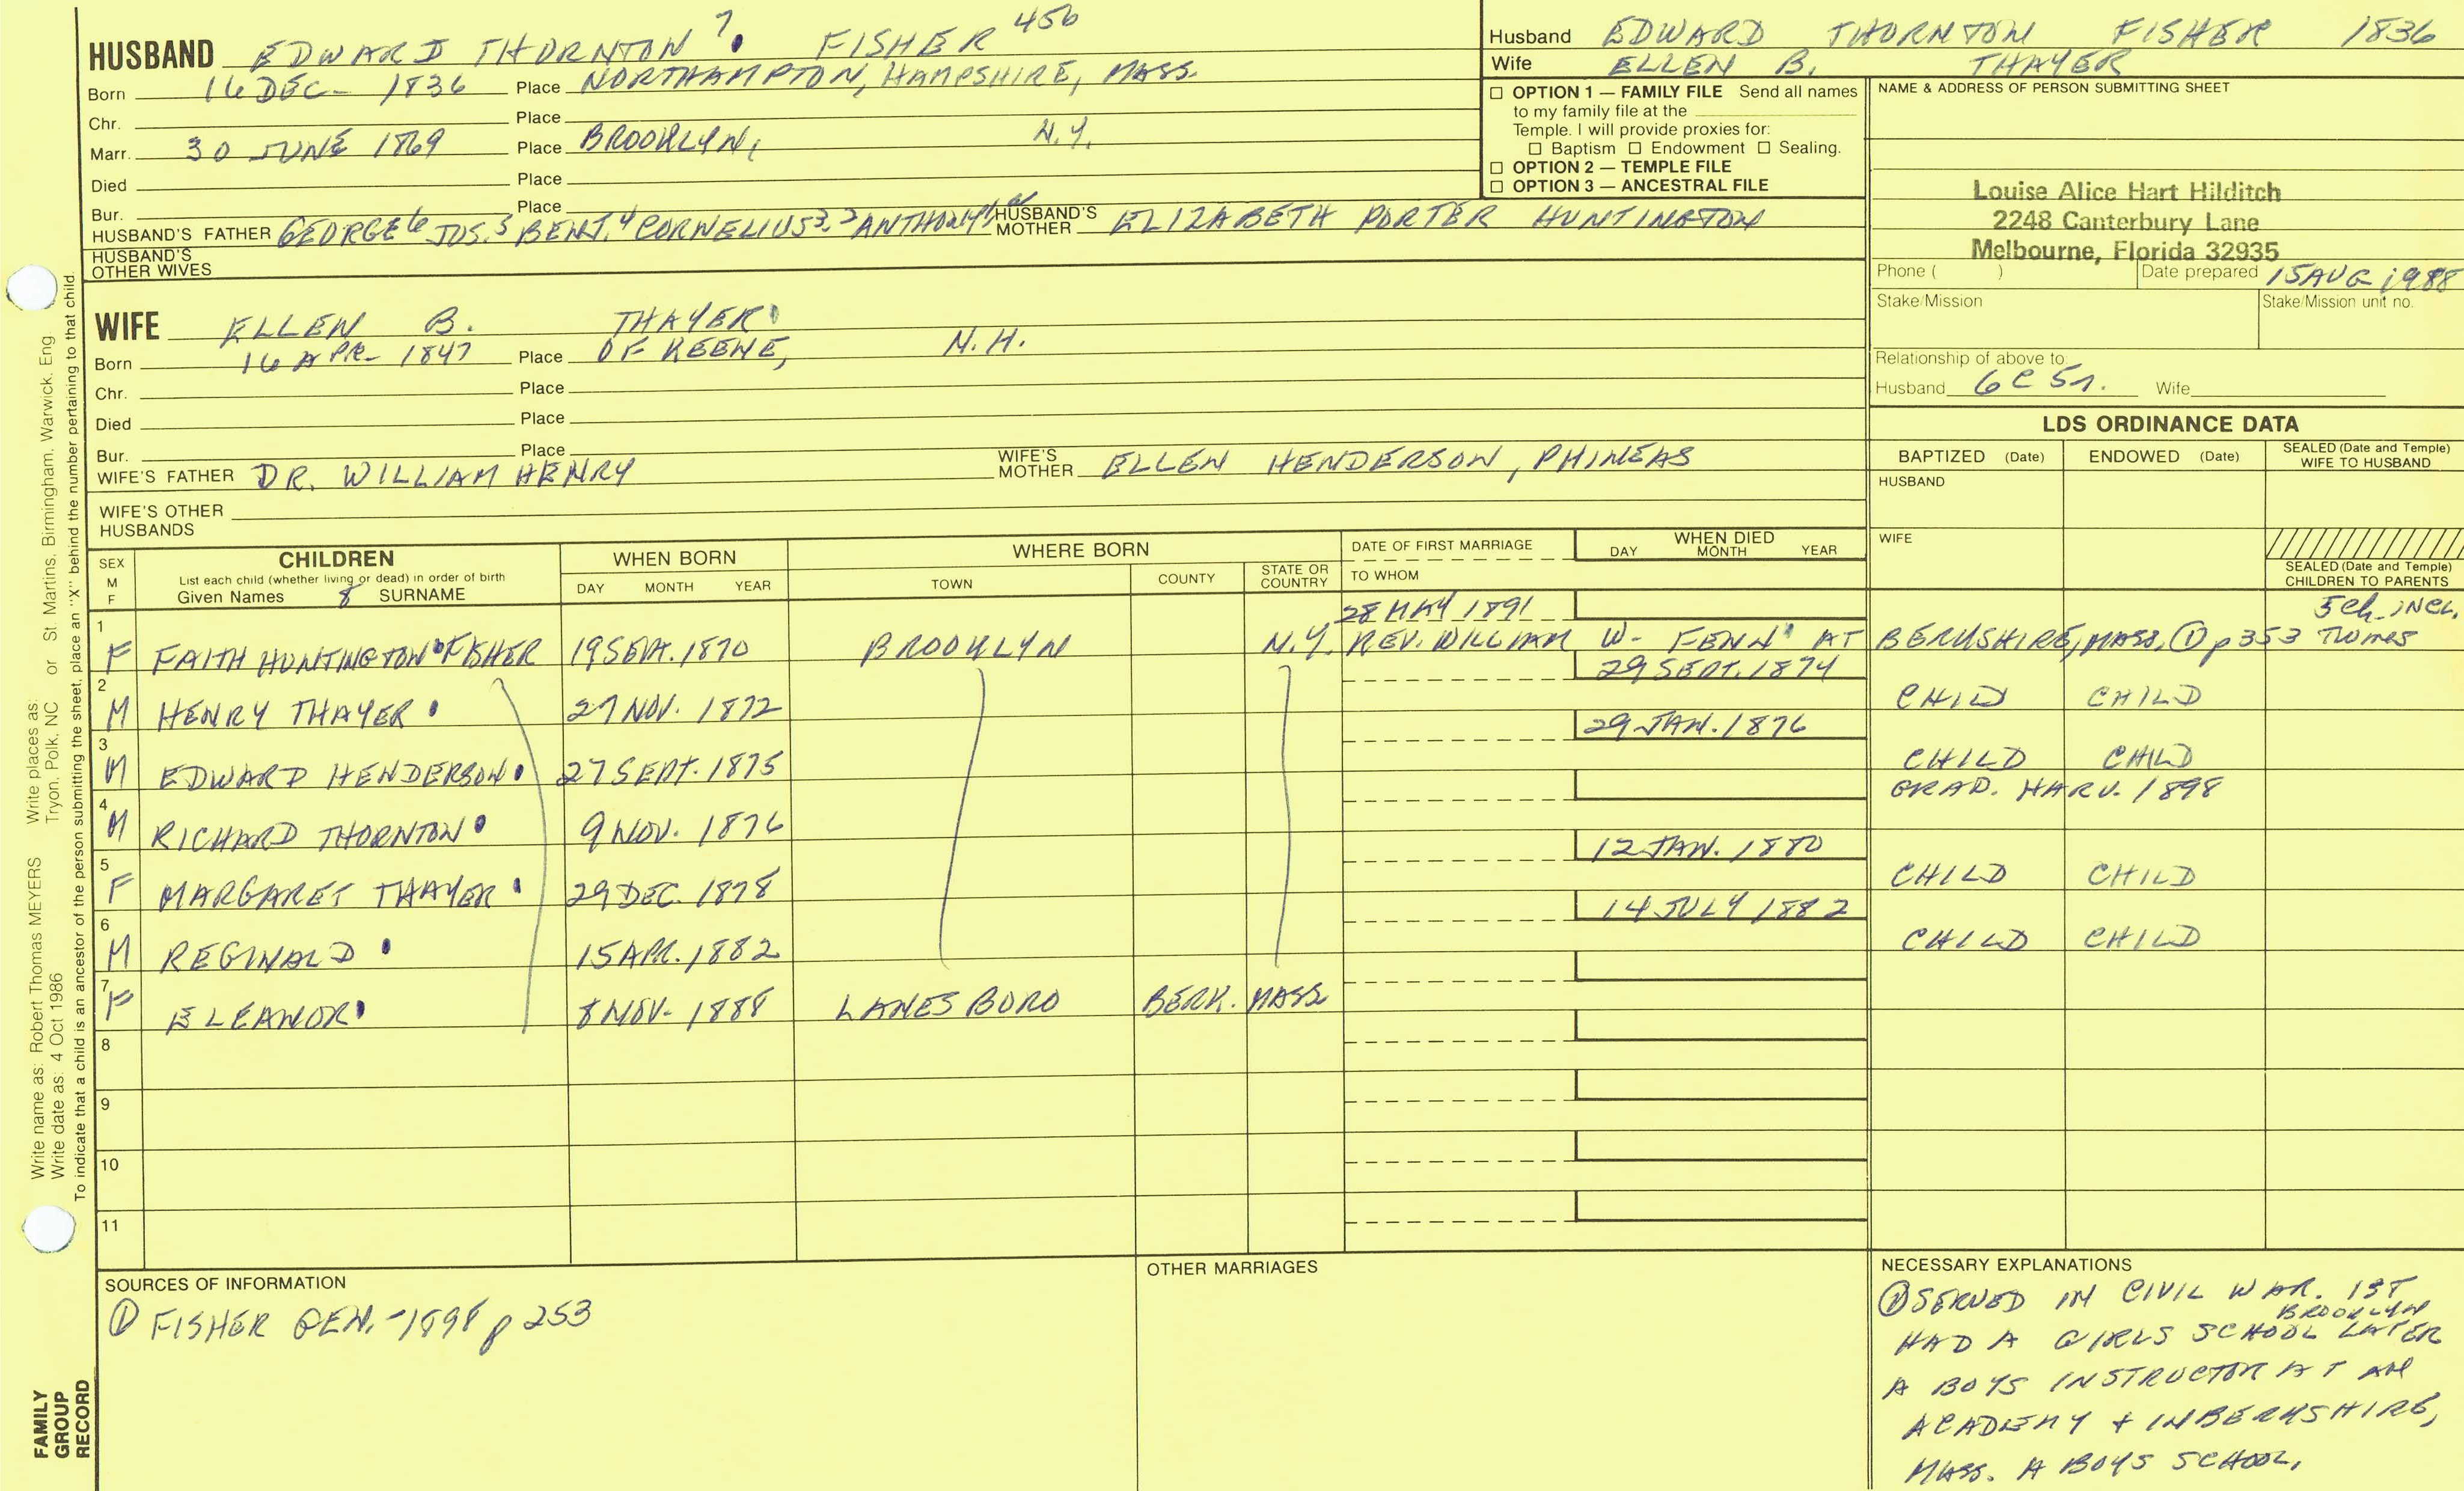 HUSBAND EDWARD THORNTON 7. FISHER 456
Born 16 DEC- 1836 Place NORTHAMPTON, HAMPSHIRE, MASS.
Chr. Place
Marr. 30 JUNE 1869 Place BROOKLYN, N.Y.
Died Place
Bur. Place
HUSBAND'S FATHER GEORGE 6 JOS. 5 BENJ. 4 CORNELIUS 3, 2 ANTHONY 1 HUSBAND'S MOTHER ELIZABETH PORTER HUNTINGTON
HUSBAND'S OTHER WIVES
Husband EDWARD THORNTON FISHER 1836
Wife ELLEN B. THAYER
☐ OPTION 1 — FAMILY FILE Send all names
to my family file at the
Temple. I will provide proxies for:
☐ Baptism ☐ Endowment ☐ Sealing.
☐ OPTION 2 — TEMPLE FILE
☐ OPTION 3 — ANCESTRAL FILE
NAME & ADDRESS OF PERSON SUBMITTING SHEET
Louise Alice Hart Hilditch
2248 Canterbury Lane
Melbourne, Florida 32935
Phone ( ) Date prepared 15 AUG 1988
Stake/Mission Stake/Mission unit no.
Relationship of above to:
Husband 6C 5r. Wife
WIFE ELLEN B. THAYER
Born 16 APR- 1847 Place OF KEENE, N.H.
Chr. Place
Died Place
Bur. Place
WIFE'S FATHER DR. WILLIAM HENRY WIFE'S MOTHER ELLEN HENDERSON, PHINEAS
WIFE'S OTHER HUSBANDS
LDS ORDINANCE DATA
BAPTIZED (Date) ENDOWED (Date) SEALED (Date and Temple) WIFE TO HUSBAND
HUSBAND
WIFE
SEALED (Date and Temple) CHILDREN TO PARENTS
SEX M F
CHILDREN
List each child (whether living or dead) in order of birth
Given Names 8 SURNAME
WHEN BORN
DAY MONTH YEAR
WHERE BORN
TOWN COUNTY STATE OR COUNTRY
DATE OF FIRST MARRIAGE
TO WHOM
WHEN DIED
DAY MONTH YEAR
28 MAY 1891 5 ch. INCL.
1 F FAITH HUNTINGTON FISHER 19 SEPT. 1870 BROOKLYN N.Y. REV. WILLIAM W- FENN AT BERKSHIRE, MASS. ① p 353 THOMES
29 SEPT. 1874
2 M HENRY THAYER 27 NOV. 1872 CHILD CHILD
29 JAN. 1876
3 M EDWARD HENDERSON 27 SEPT. 1875 CHILD CHILD
GRAD. HARV. 1898
4 M RICHARD THORNTON 9 NOV. 1876
12 JAN. 1880
5 F MARGARET THAYER 29 DEC. 1878 CHILD CHILD
14 JULY 1882
6 M REGINALD 15 APR. 1882 CHILD CHILD
7 F ELEANOR 8 NOV- 1888 LANESBORO BERK. MASS
8
9
10
11
SOURCES OF INFORMATION
① FISHER GEN. -1898 p 253
OTHER MARRIAGES
NECESSARY EXPLANATIONS
① SERVED IN CIVIL WAR. 1ST
BROOKLYN
HAD A GIRLS SCHOOL LATER
A BOYS INSTRUCTOR AT AM
ACADEMY + IN BERKSHIRE,
MASS. A BOYS SCHOOL.
Write name as: Robert Thomas MEYERS Write places as:
Write date as: 4 Oct 1986 Tryon, Polk, NC or St. Martins, Birmingham, Warwick, Eng
To indicate that a child is an ancestor of the person submitting the sheet, place an "X" behind the number pertaining to that child.
FAMILY
GROUP
RECORD